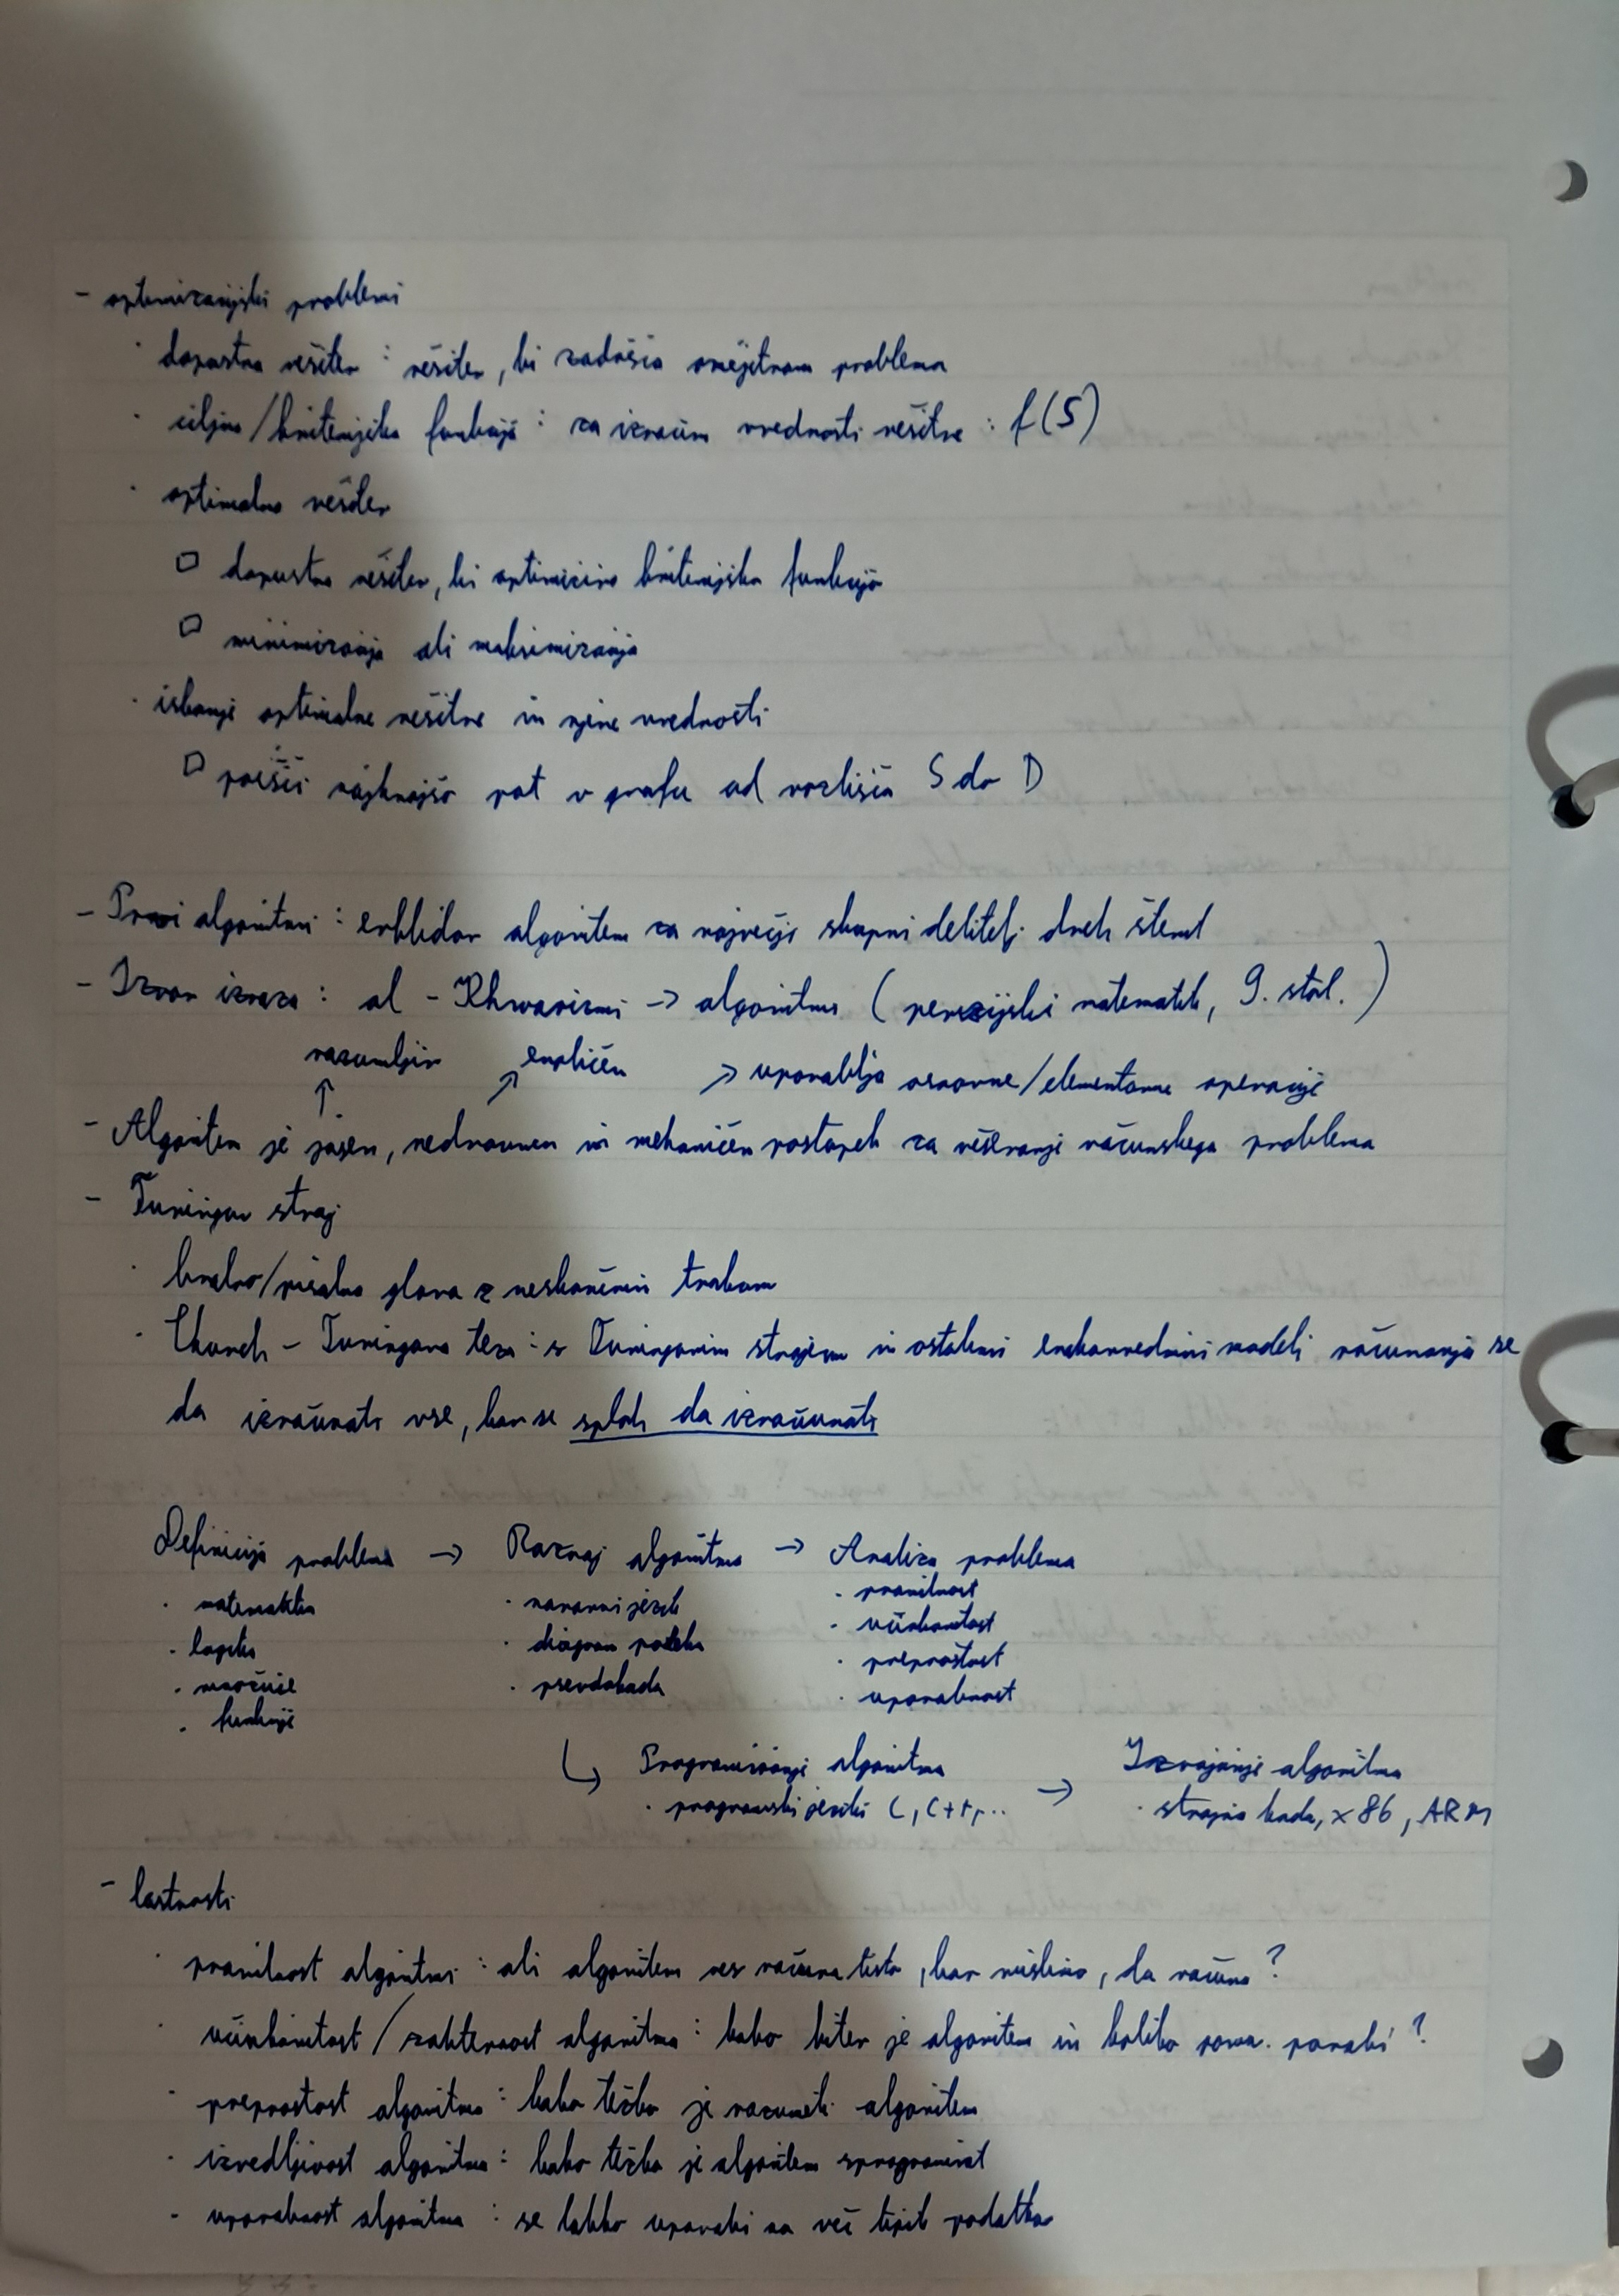 - optimizacijski problemi
· dopustna rešitev : rešitev, ki zadošča omejitvam problema
· ciljna/kriterijska funkcija : za izračun vrednosti rešitve : f(S)
· optimalna rešitev
▫ dopustna rešitev, ki optimizira kriterijsko funkcijo
▫ minimizacija ali maksimizacija
· iskanje optimalne rešitve in njene vrednosti
▫ poišči najkrajšo pot v grafu od vozlišča S do D
- Prvi algoritmi : evklidov algoritem za največji skupni delitelj dveh števil
- Izvor izraza : al - Khwarizmi -> algoritmus (perzijski matematik, 9. stol.)
razumljiv enoličen -> uporablja osnovne/elementarne operacije
- Algoritem je jasen, nedvoumen in mehaničen postopek za reševanje računskega problema
- Turingov stroj
· bralno/pisalna glava z neskončnim trakom
· Church - Turingova teza : s Turingovim strojem in ostalimi enakovrednimi modeli računanja se
da izračunati vse, kar se sploh da izračunati
Definicija problema -> Razvoj algoritma -> Analiza problema
· matematika · naravni jezik · pravilnost
· logika · diagram poteka · učinkovitost
· množice · psevdokoda · preprostost
· funkcije · uporabnost
↳ Programiranje algoritma -> Izvajanje algoritma
· programski jeziki C, C++, .. · strojna koda, x86, ARM
- lastnosti
· pravilnost algoritma : ali algoritem res računa tisto, kar mislimo, da računa ?
· učinkovitost / zahtevnost algoritma : kako hiter je algoritem in koliko pom. porabi ?
· preprostost algoritma : kako težko je razumeti algoritem
· izvedljivost algoritma : kako težko je algoritem sprogramirat
· uporabnost algoritma : se lahko uporabi na več tipih podatkov